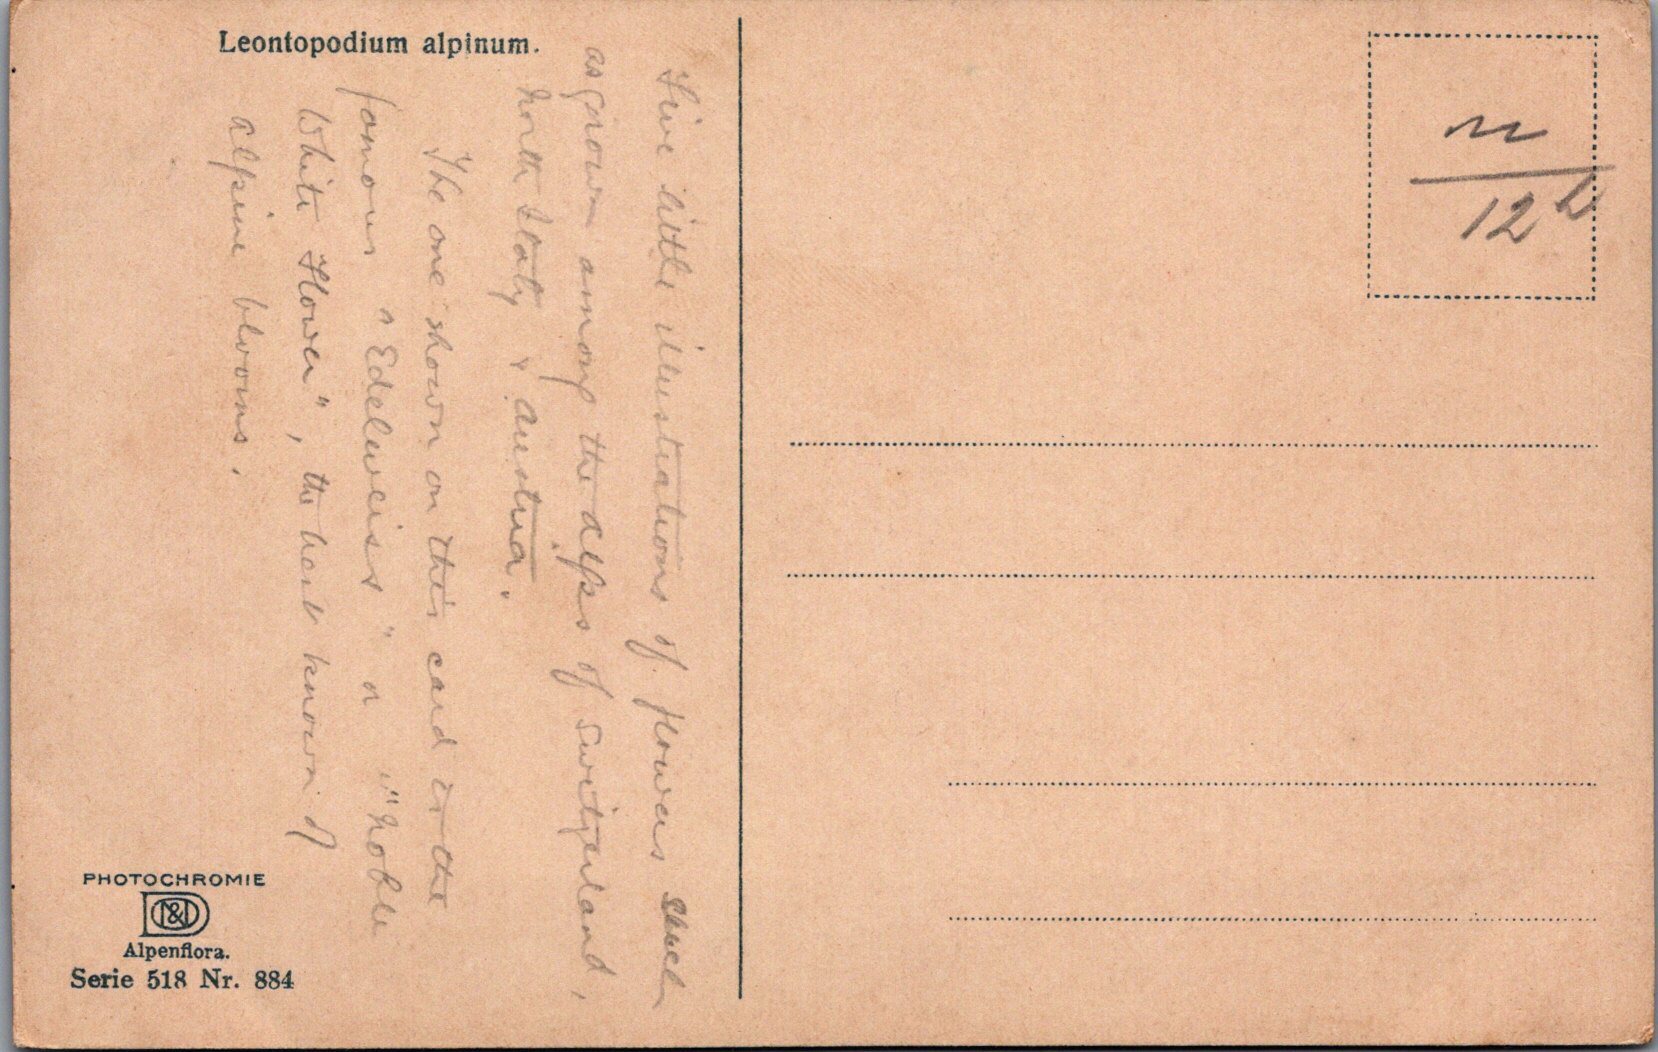 Leontopodium alpinum.
Five little illustrations of flowers such
as grown among the alps of Switzerland,
North Italy & Austria.
The one shown on this card is the
famous "Edelweiss" or "Noble
White Flower", the best known of
alpine blooms.
PHOTOCHROMIE
D&N
Alpenflora.
Serie 518 Nr. 884
12